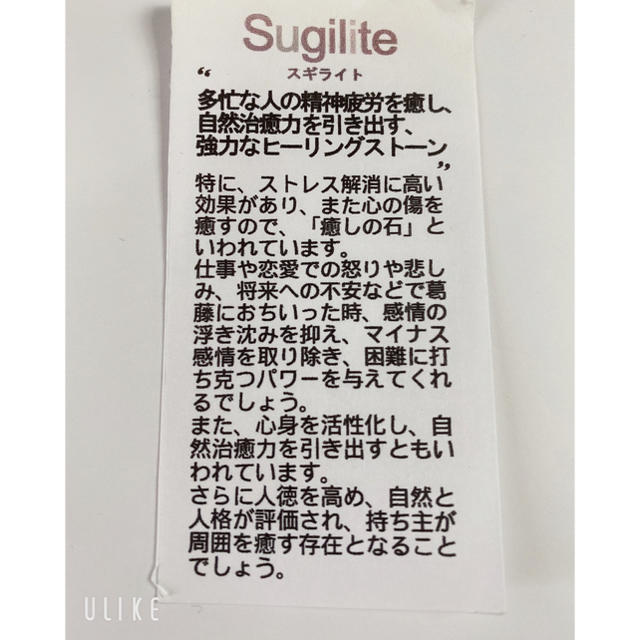 Sugilite
スギライト
“
多忙な人の精神疲労を癒し、
自然治癒力を引き出す、
強力なヒーリングストーン
”
特に、ストレス解消に高い
効果があり、また心の傷を
癒すので、「癒しの石」と
いわれています。
仕事や恋愛での怒りや悲し
み、将来への不安などで葛
藤におちいった時、感情の
浮き沈みを抑え、マイナス
感情を取り除き、困難に打
ち克つパワーを与えてくれ
るでしょう。
また、心身を活性化し、自
然治癒力を引き出すともい
われています。
さらに人徳を高め、自然と
人格が評価され、持ち主が
周囲を癒す存在となること
でしょう。
ULIKE